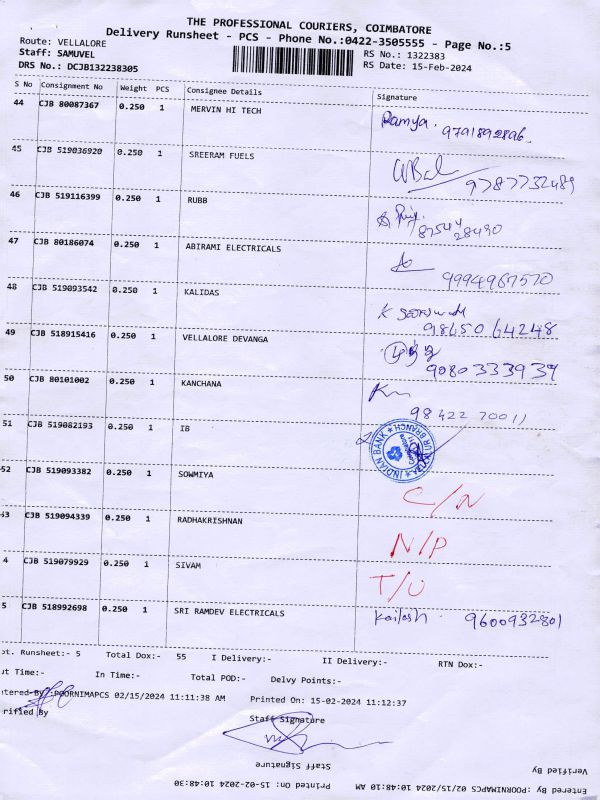 THE PROFESSIONAL COURIERS, COIMBATORE
Delivery Runsheet - PCS - Phone No.:0422-3505555 - Page No.:5
Route: VELLALORE
Staff: SAMUVEL
RS No.: 1322383
DRS No.: DCJB132238305
RS Date: 15-Feb-2024
S No Consignment No Weight PCS Consignee Details Signature
44 CJB 80087367 0.250 1 MERVIN HI TECH Ramya. 9791892896
45 CJB 519036920 0.250 1 SREERAM FUELS 9787732489
46 CJB 519116399 0.250 1 RUBB
47 CJB 80186074 0.250 1 ABIRAMI ELECTRICALS 9994967570
48 CJB 519093542 0.250 1 KALIDAS K 98650 64248
49 CJB 518915416 0.250 1 VELLALORE DEVANGA 9080333934
50 CJB 80101002 0.250 1 KANCHANA 98422 70011
51 CJB 519082193 0.250 1 IB INDIAN BANK UR BRANCH
52 CJB 519093382 0.250 1 SOWMIYA C/N
53 CJB 519094339 0.250 1 RADHAKRISHNAN N/P
4 CJB 519079929 0.250 1 SIVAM T/U
5 CJB 518992698 0.250 1 SRI RAMDEV ELECTRICALS Kailash 9600932801
ot. Runsheet:- 5 Total Dox:- 55 I Delivery:- II Delivery:- RTN Dox:-
ut Time:- In Time:- Total POD:- Delvy Points:-
ntered By :POORNIMAPCS 02/15/2024 11:11:38 AM Printed On: 15-02-2024 11:12:37
rified By Staff Signature
Staff Signature Verified By
Printed On: 15-02-2024 10:48:30 Entered By :POORNIMAPCS 02/15/2024 10:48:10 AM